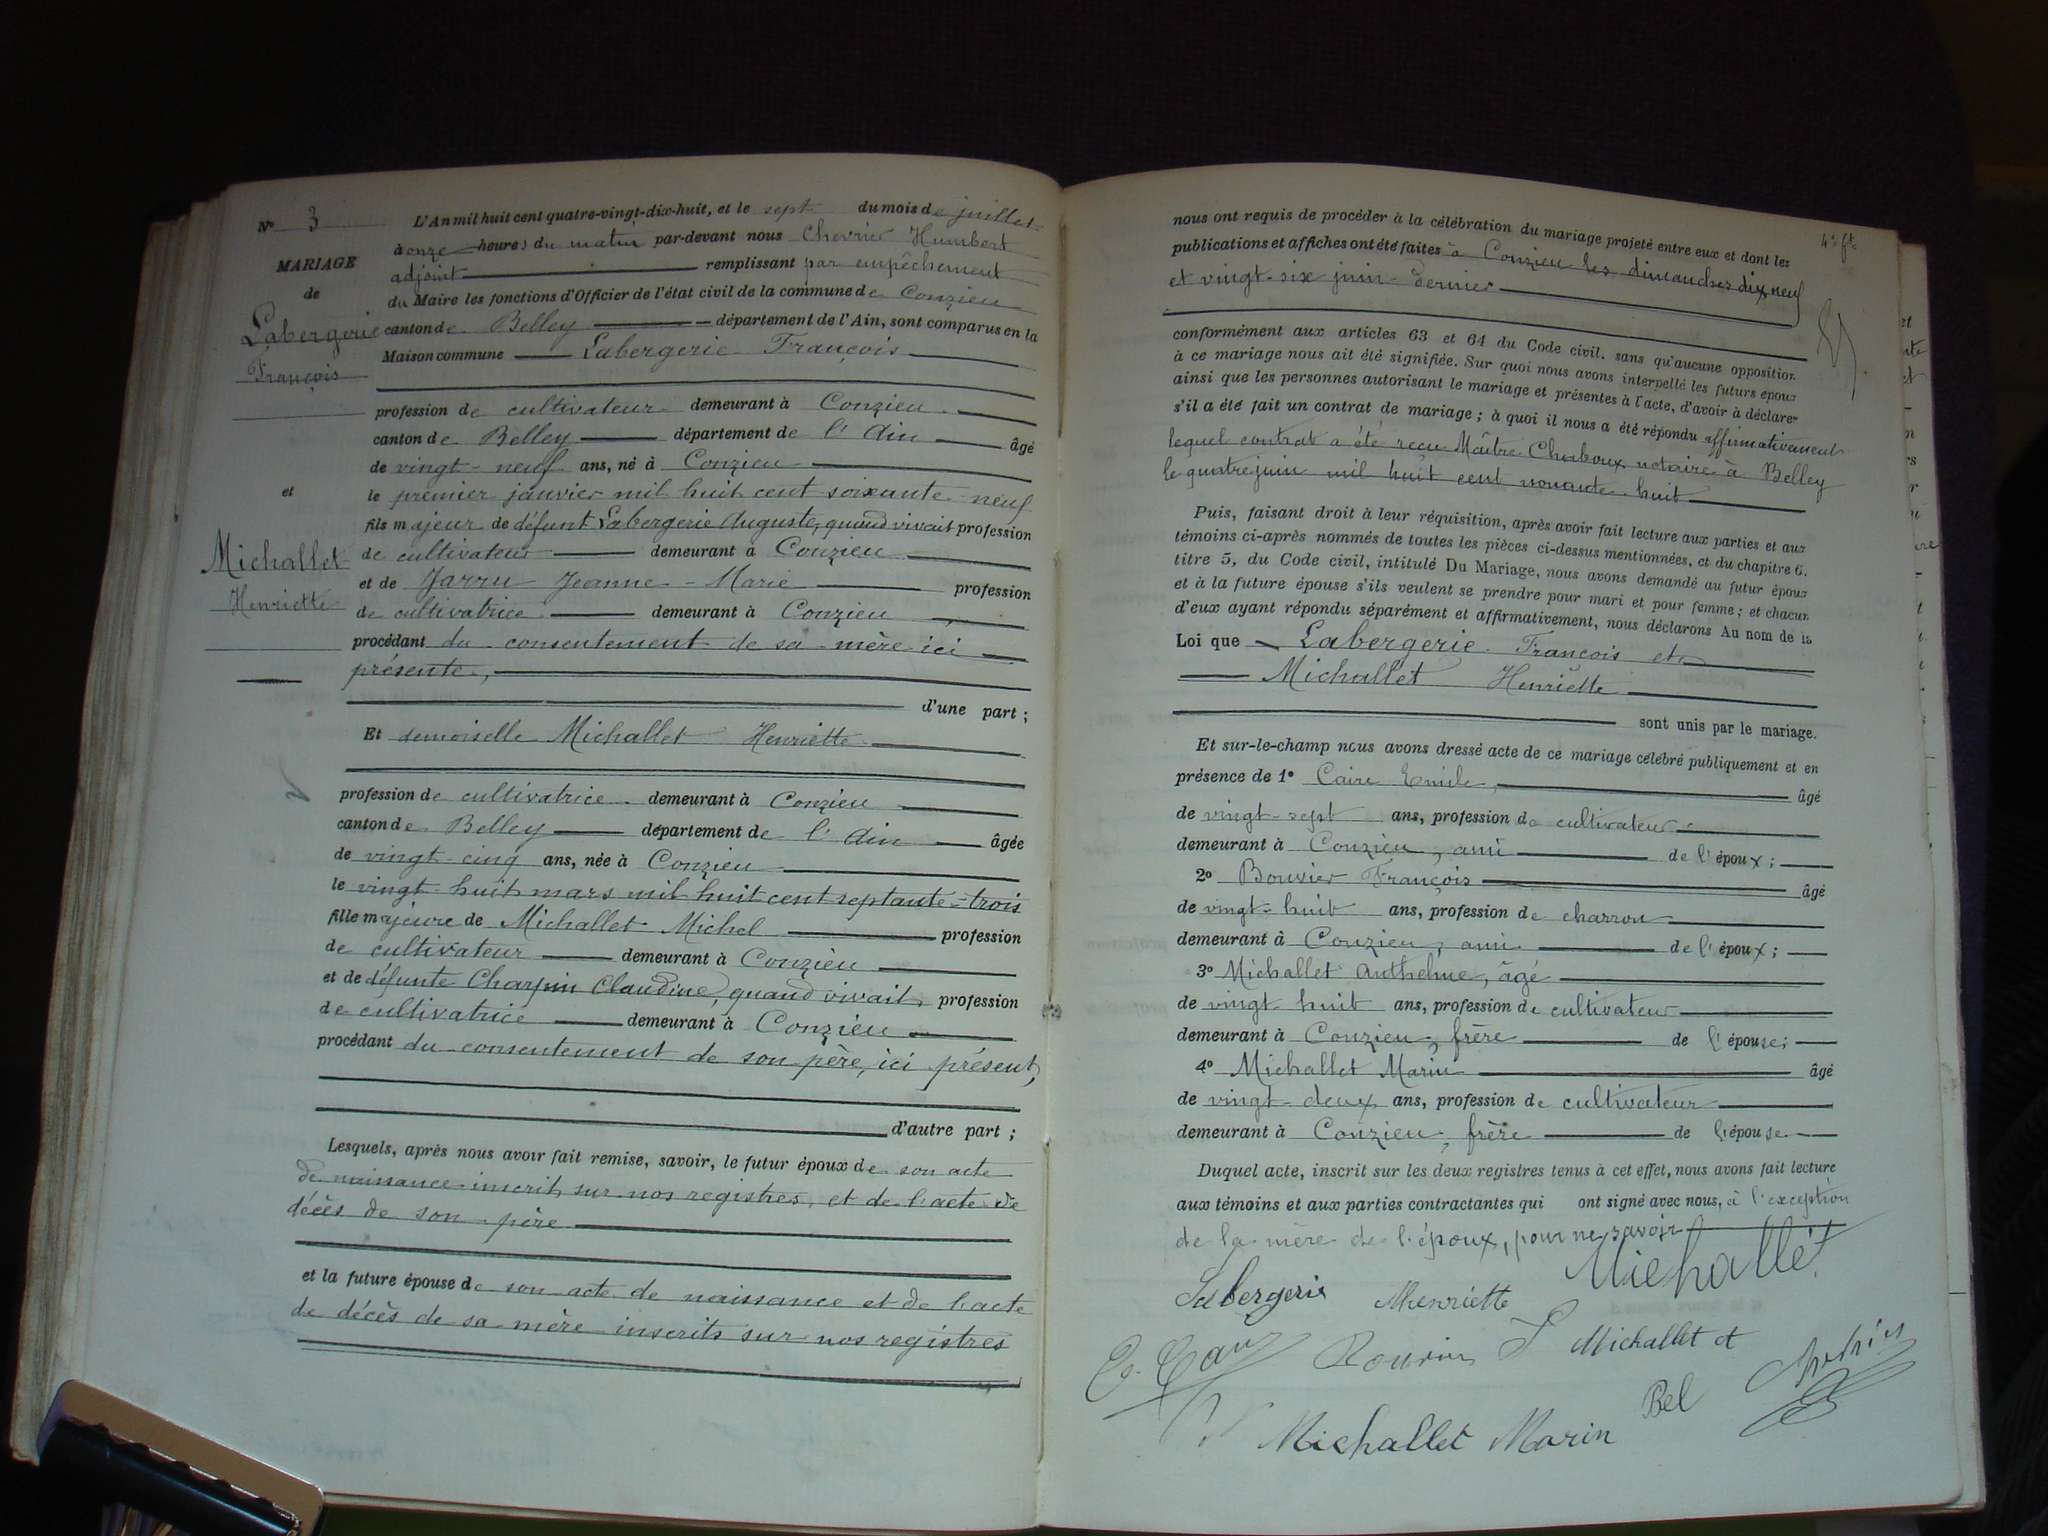 N° 3
MARIAGE
de
Labergerie
François
et
Michallet
Henriette
L'An mil huit cent quatre-vingt-dix-huit, et le sept du mois de juillet
à onze heures du matin par-devant nous Chevrier Humbert
adjoint remplissant par empêchement
du Maire les fonctions d'Officier de l'état civil de la commune de Conzieu
canton de Belley département de l'Ain, sont comparus en la
Maison commune Labergerie François
profession de cultivateur demeurant à Conzieu
canton de Belley département de l'Ain âgé
de vingt-neuf ans, né à Conzieu
le premier janvier mil huit cent soixante-neuf
fils majeur de défunt Labergerie Auguste, quand vivait profession
de cultivateur demeurant à Conzieu
et de Jarru Jeanne-Marie profession
de cultivatrice demeurant à Conzieu
procédant du consentement de sa mère ici
présente,
d'une part ;
Et demoiselle Michallet Henriette
profession de cultivatrice demeurant à Conzieu
canton de Belley département de l'Ain âgée
de vingt-cinq ans, née à Conzieu
le vingt-huit mars mil huit cent septante-trois
fille majeure de Michallet Michel profession
de cultivateur demeurant à Conzieu
et de défunte Charpin Claudine, quand vivait profession
de cultivatrice demeurant à Conzieu
procédant du consentement de son père, ici présent,
d'autre part ;
Lesquels, après nous avoir fait remise, savoir, le futur époux de son acte
de naissance inscrit sur nos registres, et de l'acte de
décès de son père
et la future épouse de son acte de naissance et de l'acte
de décès de sa mère inscrits sur nos registres
nous ont requis de procéder à la célébration du mariage projeté entre eux et dont les
publications et affiches ont été faites à Conzieu les dimanches dix neuf
et vingt-six juin dernier
conformément aux articles 63 et 64 du Code civil. sans qu'aucune opposition
à ce mariage nous ait été signifiée. Sur quoi nous avons interpellé les futurs époux
ainsi que les personnes autorisant le mariage et présentes à l'acte, d'avoir à déclarer
s'il a été fait un contrat de mariage ; à quoi il nous a été répondu affirmativement
lequel contrat a été reçu Maître Chaboux notaire à Belley
le quatre juin mil huit cent nonante-huit
Puis, faisant droit à leur réquisition, après avoir fait lecture aux parties et aux
témoins ci-après nommés de toutes les pièces ci-dessus mentionnées, et du chapitre 6.
titre 5, du Code civil, intitulé Du Mariage, nous avons demandé au futur époux
et à la future épouse s'ils veulent se prendre pour mari et pour femme ; et chacun
d'eux ayant répondu séparément et affirmativement, nous déclarons Au nom de la
Loi que Labergerie François et
Michallet Henriette
sont unis par le mariage.
Et sur-le-champ nous avons dressé acte de ce mariage célébré publiquement et en
présence de 1° Caire Emile, âgé
de vingt-sept ans, profession de cultivateur
demeurant à Conzieu, ami de l'époux ;
2° Bouvier François âgé
de vingt-huit ans, profession de charron
demeurant à Conzieu, ami de l'époux ;
3° Michallet Anthelme, âgé
de vingt huit ans, profession de cultivateur
demeurant à Conzieu, frère de l'épouse ;
4° Michallet Marin âgé
de vingt-deux ans, profession de cultivateur
demeurant à Conzieu, frère de l'épouse
Duquel acte, inscrit sur les deux registres tenus à cet effet, nous avons fait lecture
aux témoins et aux parties contractantes qui ont signé avec nous, à l'exception
de la mère de l'époux, pour ne savoir
Michallet
Labergerie Henriette
Michallet et
Bel
Michallet Marin